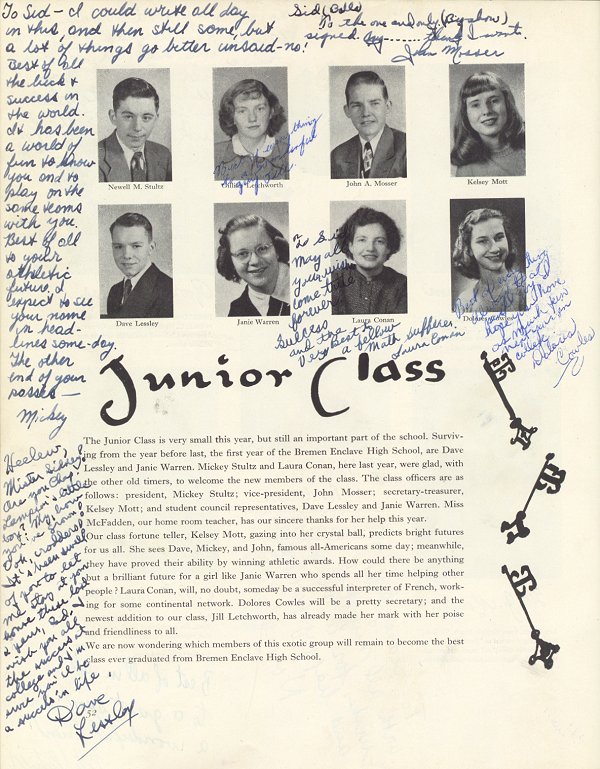 To Sid - I could write all day
in this, and then still some, but
a lot of things go better unsaid - no!
Best of all
the luck &
success in
the world.
It has been
a world of
fun to know
you and to
play on the
same teams
with you.
Best of all
to your
athletic
future. I
expect to see
your name
in head-
lines some-day.
The other
end of your
passes -
Mickey
To the one and only
signed say ........ think I want.
John Mosser
Newell M. Stultz
Letchworth
John A. Mosser
Kelsey Mott
Best of everything
To Sid
May all
your wishes
come true
forever.
Success
and the
very best of
a fellow
Math sufferer.
Laura Conan
Dave Lessley
Janie Warren
Laura Conan
Best of everything
Dolores
Cowles
Junior Class
The Junior Class is very small this year, but still an important part of the school. Surviv-
ing from the year before last, the first year of the Bremen Enclave High School, are Dave
Lessley and Janie Warren. Mickey Stultz and Laura Conan, here last year, were glad, with
the other old timers, to welcome the new members of the class. The class officers are as
follows: president, Mickey Stultz; vice-president, John Mosser; secretary-treasurer,
Kelsey Mott; and student council representatives, Dave Lessley and Janie Warren. Miss
McFadden, our home room teacher, has our sincere thanks for her help this year.
Our class fortune teller, Kelsey Mott, gazing into her crystal ball, predicts bright futures
for us all. She sees Dave, Mickey, and John, famous all-Americans some day; meanwhile,
they have proved their ability by winning athletic awards. How could there be anything
but a brilliant future for a girl like Janie Warren who spends all her time helping other
people? Laura Conan, will, no doubt, someday be a successful interpreter of French, work-
ing for some continental network. Dolores Cowles will be a pretty secretary; and the
newest addition to our class, Jill Letchworth, has already made her mark with her poise
and friendliness to all.
We are now wondering which members of this exotic group will remain to become the best
class ever graduated from Bremen Enclave High School.
Mister Sidney?
Are you Chap
little
boy?
It's been swell
of you to let
me stay at your
I wish you all
the success in
college and I'm
sure you'll be
a success in life.
Dave
Lessley
52